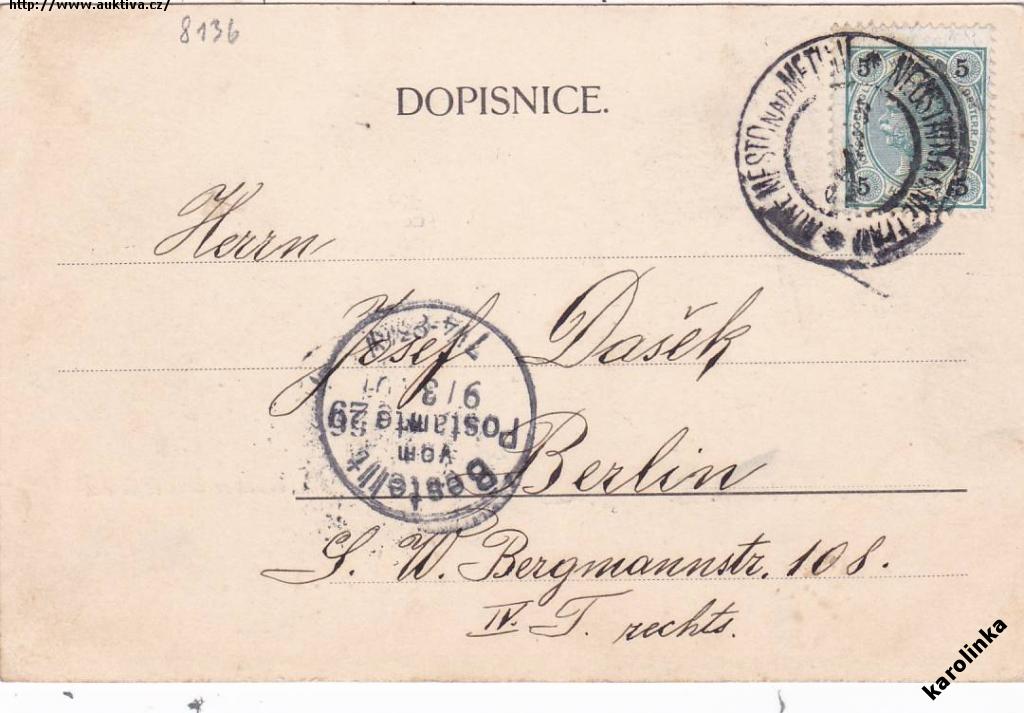 http://www.auktiva.cz/
8136
DOPISNICE.
5 5
5 5
NOVÉ MĚSTO NAD METUJÍ * NEUSTADT A.D. METTAU *
Herrn
Josef Dašek
Berlin
S. W. Bergmannstr. 108.
IV. T. rechts.
Bestellt
vom
Postamte
29
9/3
karolinka